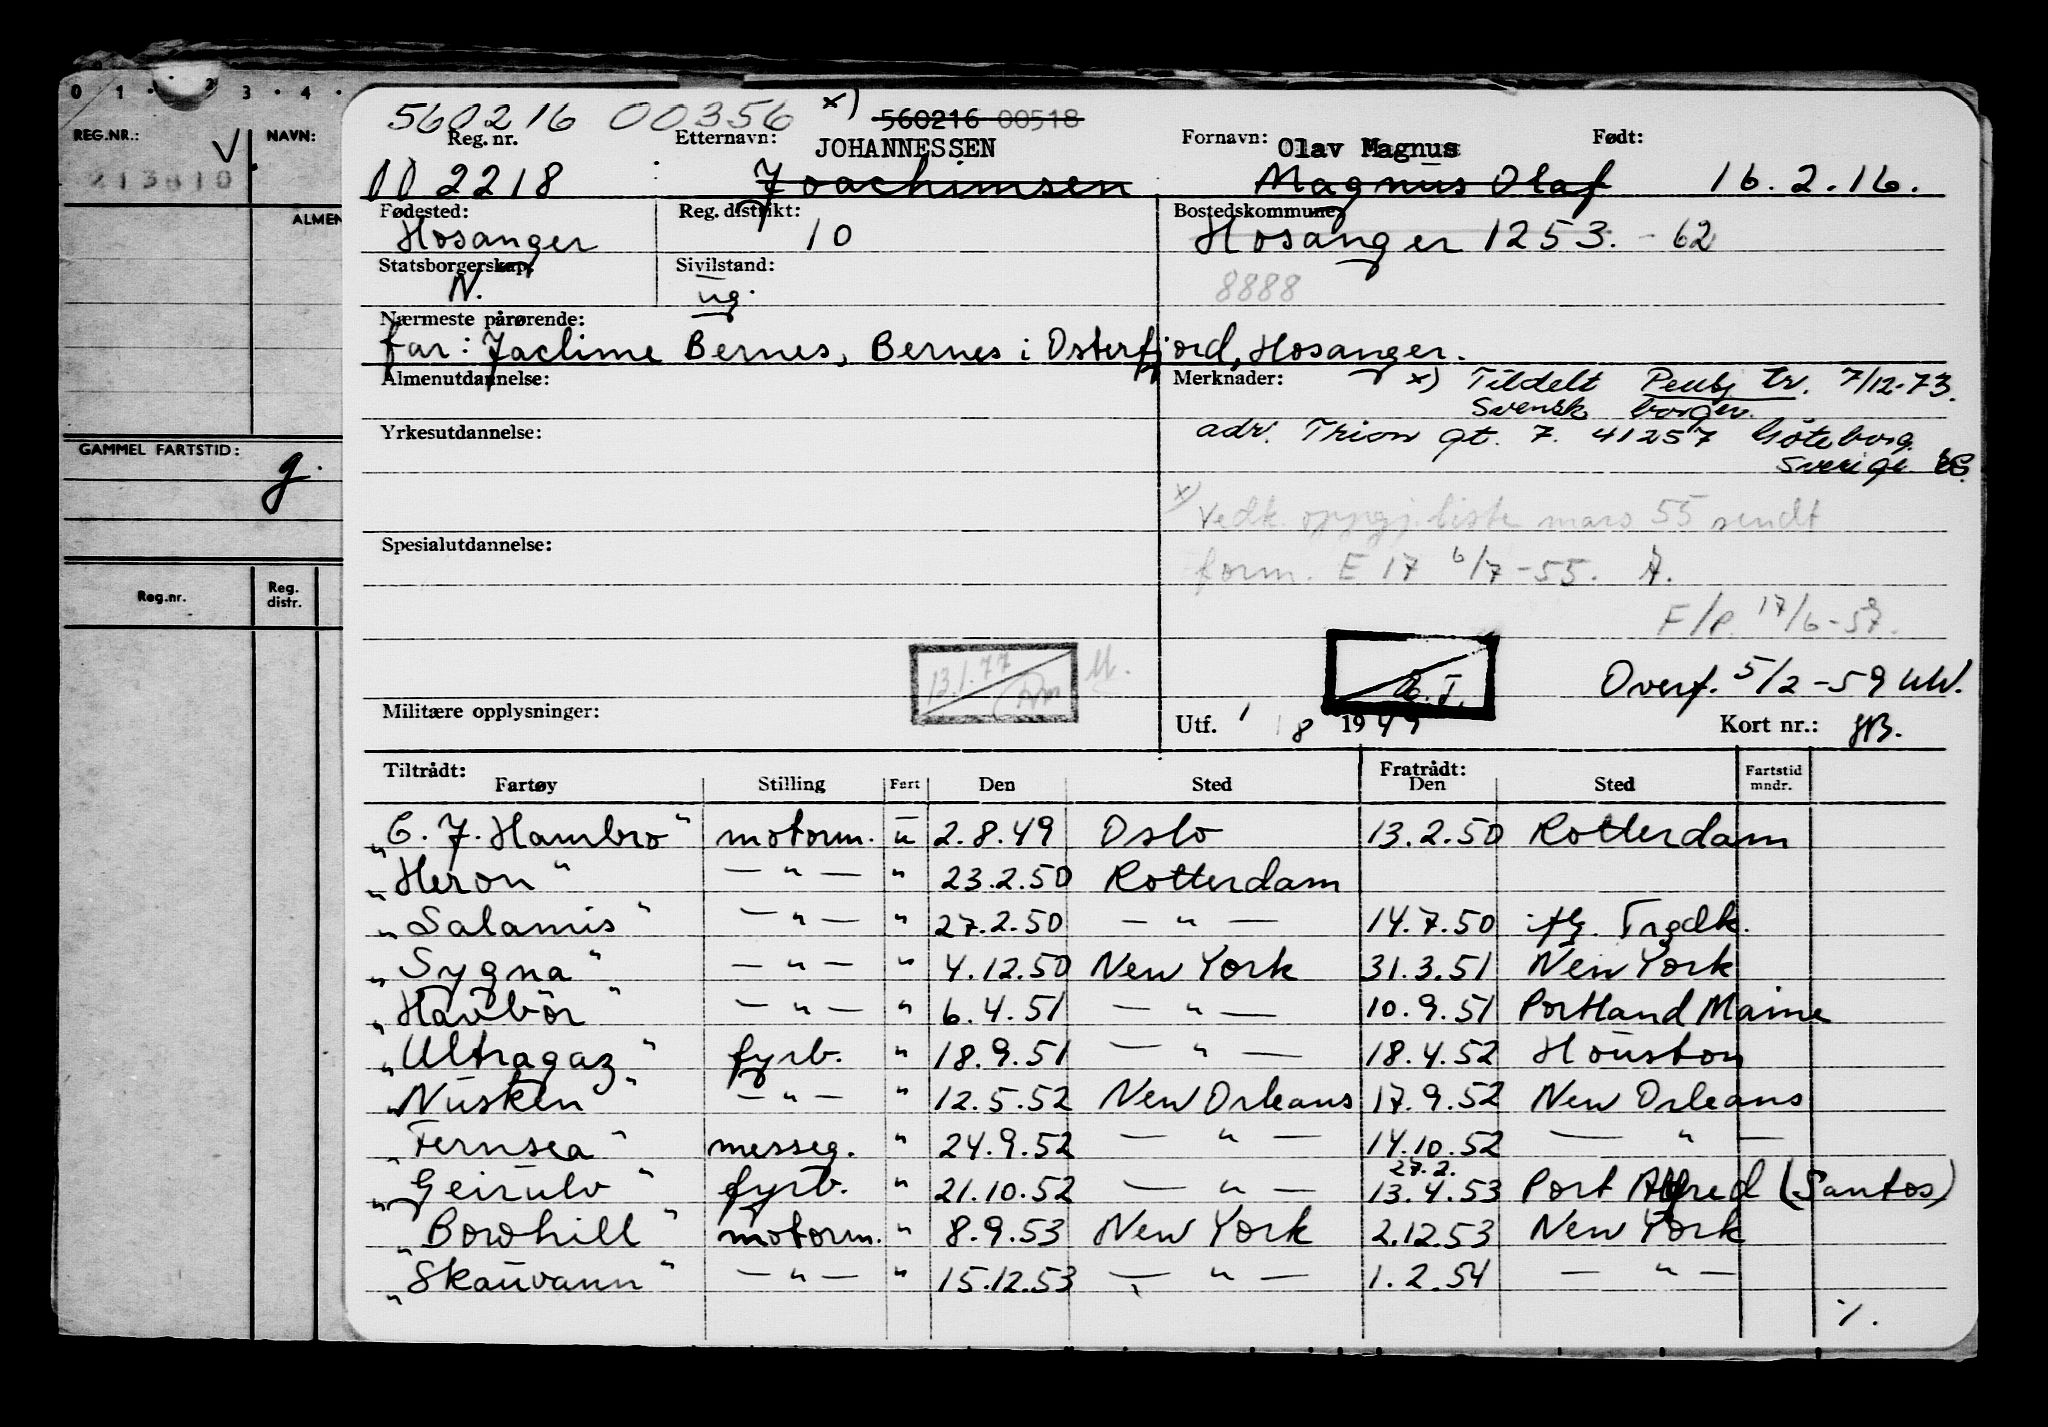 0 1 . 2 3 . 4 .
REG.NR.: V NAVN:
213610
ALMEN
GAMMEL FARTSTID: g.
Reg.nr. Reg. distr.
560216 00356 x) 560216 00518
Reg. nr. Etternavn: JOHANNESSEN Fornavn: Olav Magnus Født:
002218 Joachimsen Magnus Olaf 16.2.16.
Fødested: Reg. distrikt: Bostedskommune:
Hosanger 10 Hosanger 1253. - 62
Statsborgerskap: Sivilstand:
N. ug. 8888
Nærmeste pårørende:
far: Joclime Bernes, Bernes i Osterfjord, Hosanger.
Almenutdannelse: Merknader: x) Tildelt Pensj tr. 7/12-73.
Svensk borger.
Yrkesutdannelse: adr. Trion gt. 7. 41257 Göteborg
Sverige
x) Vedk. oppgj. liste mars 55 sendt
Spesialutdannelse:
form. E 17 6/7-55. A.
F/P. 17/6-57.
13.1.77
Overf. 5/2-59
Militære opplysninger: Utf. 1 8 1949 Kort nr.:
Tiltrådt: Fratrådt:
Fartøy Stilling Fart Den Sted Den Sted Fartstid mndr.
"C. J. Hambro" motorm. u 2.8.49 Oslo 13.2.50 Rotterdam
"Heron" — " — " 23.2.50 Rotterdam
"Salamis" — " — " 27.2.50 — " — 14.7.50 iflg. Trgdk.
"Sygna" — " — " 4.12.50 New York 31.3.51 New York
"Havbör" — " — " 6.4.51 — " — 10.9.51 Portland Maine
"Ultragaz" fyrb. " 18.9.51 — " — 18.4.52 Houston
"Nusken" — " — " 12.5.52 New Orleans 17.9.52 New Orleans
"Fernsea" messeg. " 24.9.52 — " — 14.10.52 — " —
27.2.
"Geirulv" fyrb. " 21.10.52 — " — 13.4.53 Port Alfred (Santos)
"Bowhill" motorm. " 8.9.53 New York 2.12.53 New York
"Skauvann" — " — " 15.12.53 — " — 1.2.54 — " —
./.